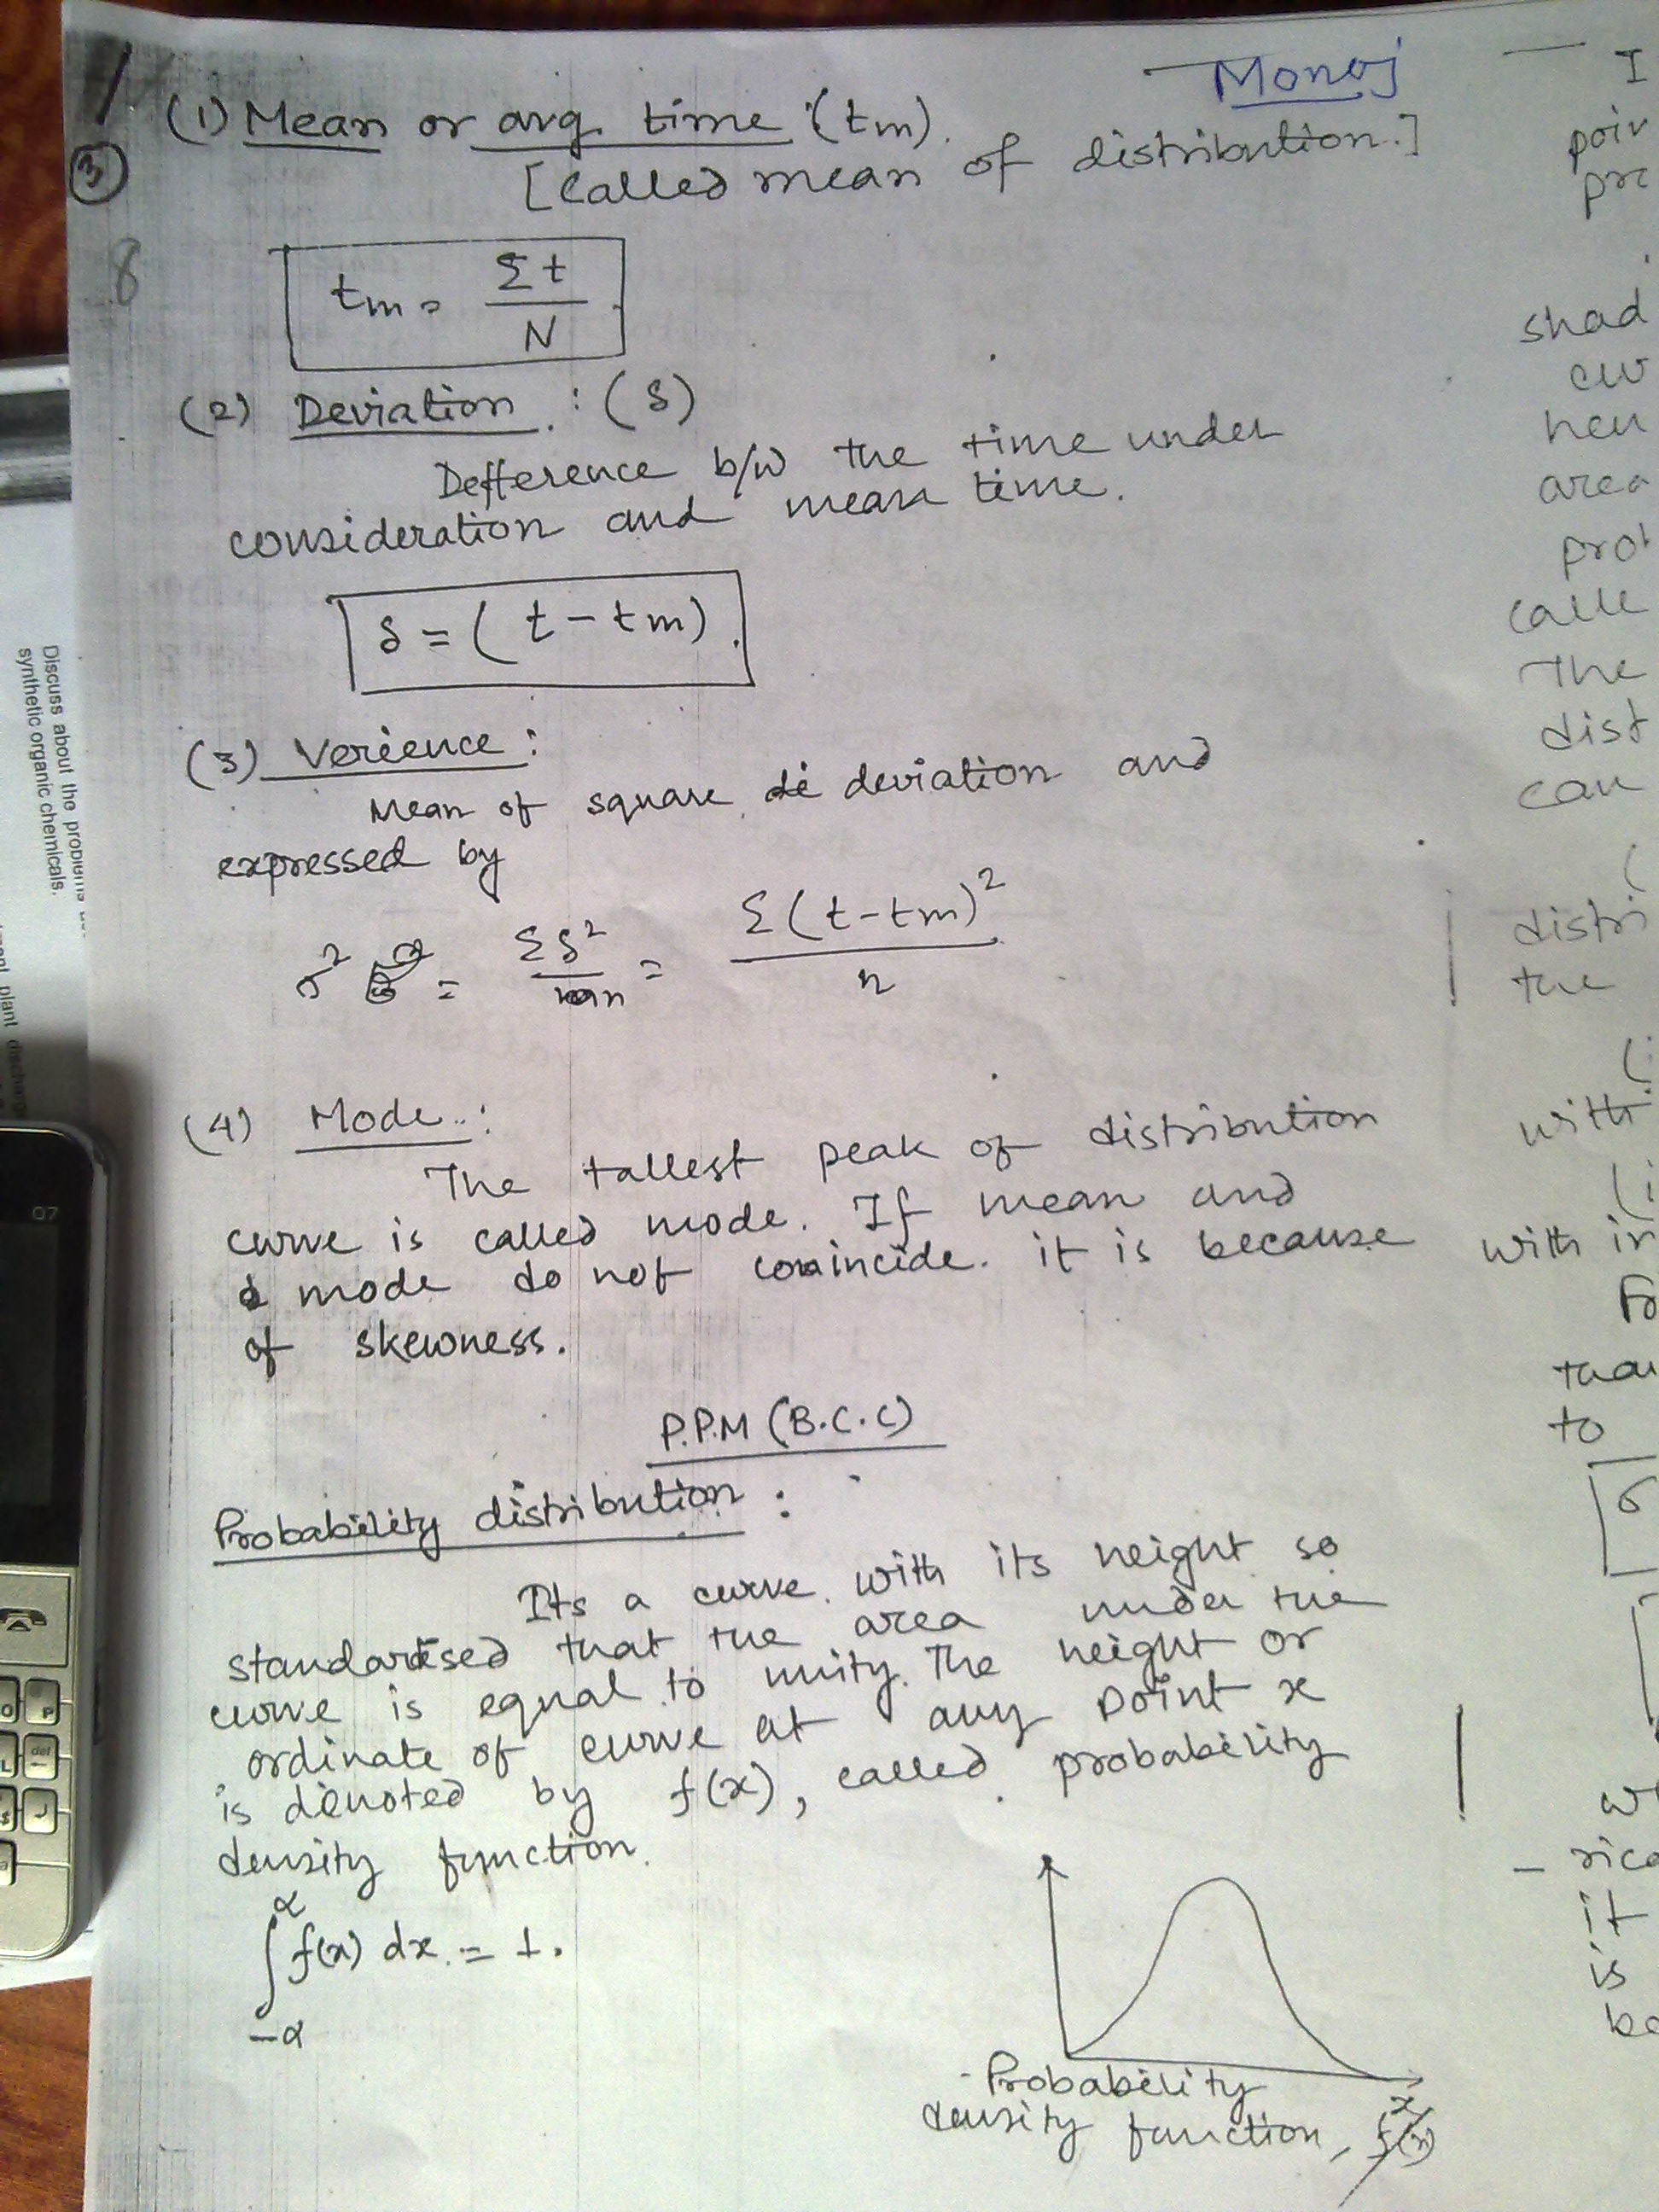 Monoj
(1) Mean or avg. time (tm).
(3)
[Called mean of distribution.]
8
tm = Σt / N
(2) Deviation : (δ)
Defference b/w the time under
consideration and mean time.
δ = ( t - tm ).
(3) Verience :
Mean of square deviation and
expressed by
σ² = Σδ² / n = Σ(t-tm)² / n
(4) Mode :
The tallest peak of distribution
curve is called mode. If mean and
mode do not conincide. it is because
of skewness.
P.P.M (B.C.C)
Probability distribution :
Its a curve with its height so
standardised that the area under the
curve is equal to unity. The height or
ordinate of curve at any point x
is denoted by f(x), called probability
density function.
∫ f(x) dx = 1.
α
-α
x
Probability
density function,
f(x)
I
poin
pre
shad
cur
hen
area
prob
calle
The
dist
can
(
distri
the
(i
with
(i
with in
Fo
than
to
σ
w
- rica
it
is
be
Discuss about the problems
synthetic organic chemicals.
plant discharge
07
O P
L del
$